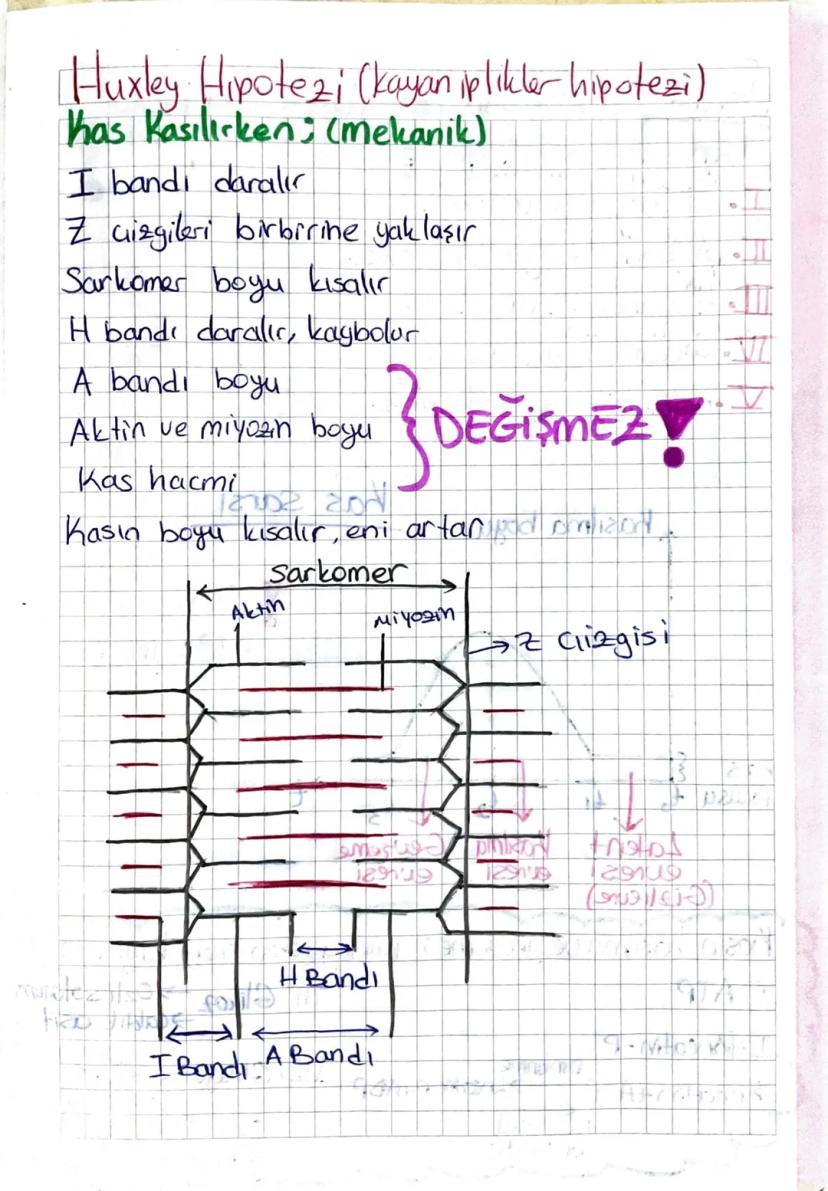 Huxley Hipotezi (kayan iplikler hipotezi)
Kas Kasılırken; (mekanik)
I bandı daralır
Z çizgileri birbirine yaklaşır
Sarkomer boyu kısalır
H bandı daralır, kaybolur
A bandı boyu
Aktin ve miyozin boyu
Kas hacmi
DEĞİŞMEZ!
Kasın boyu kısalır, eni artar
Sarkomer
Aktin
Miyozin
Z çizgisi
H Bandı
I Bandı
A Bandı